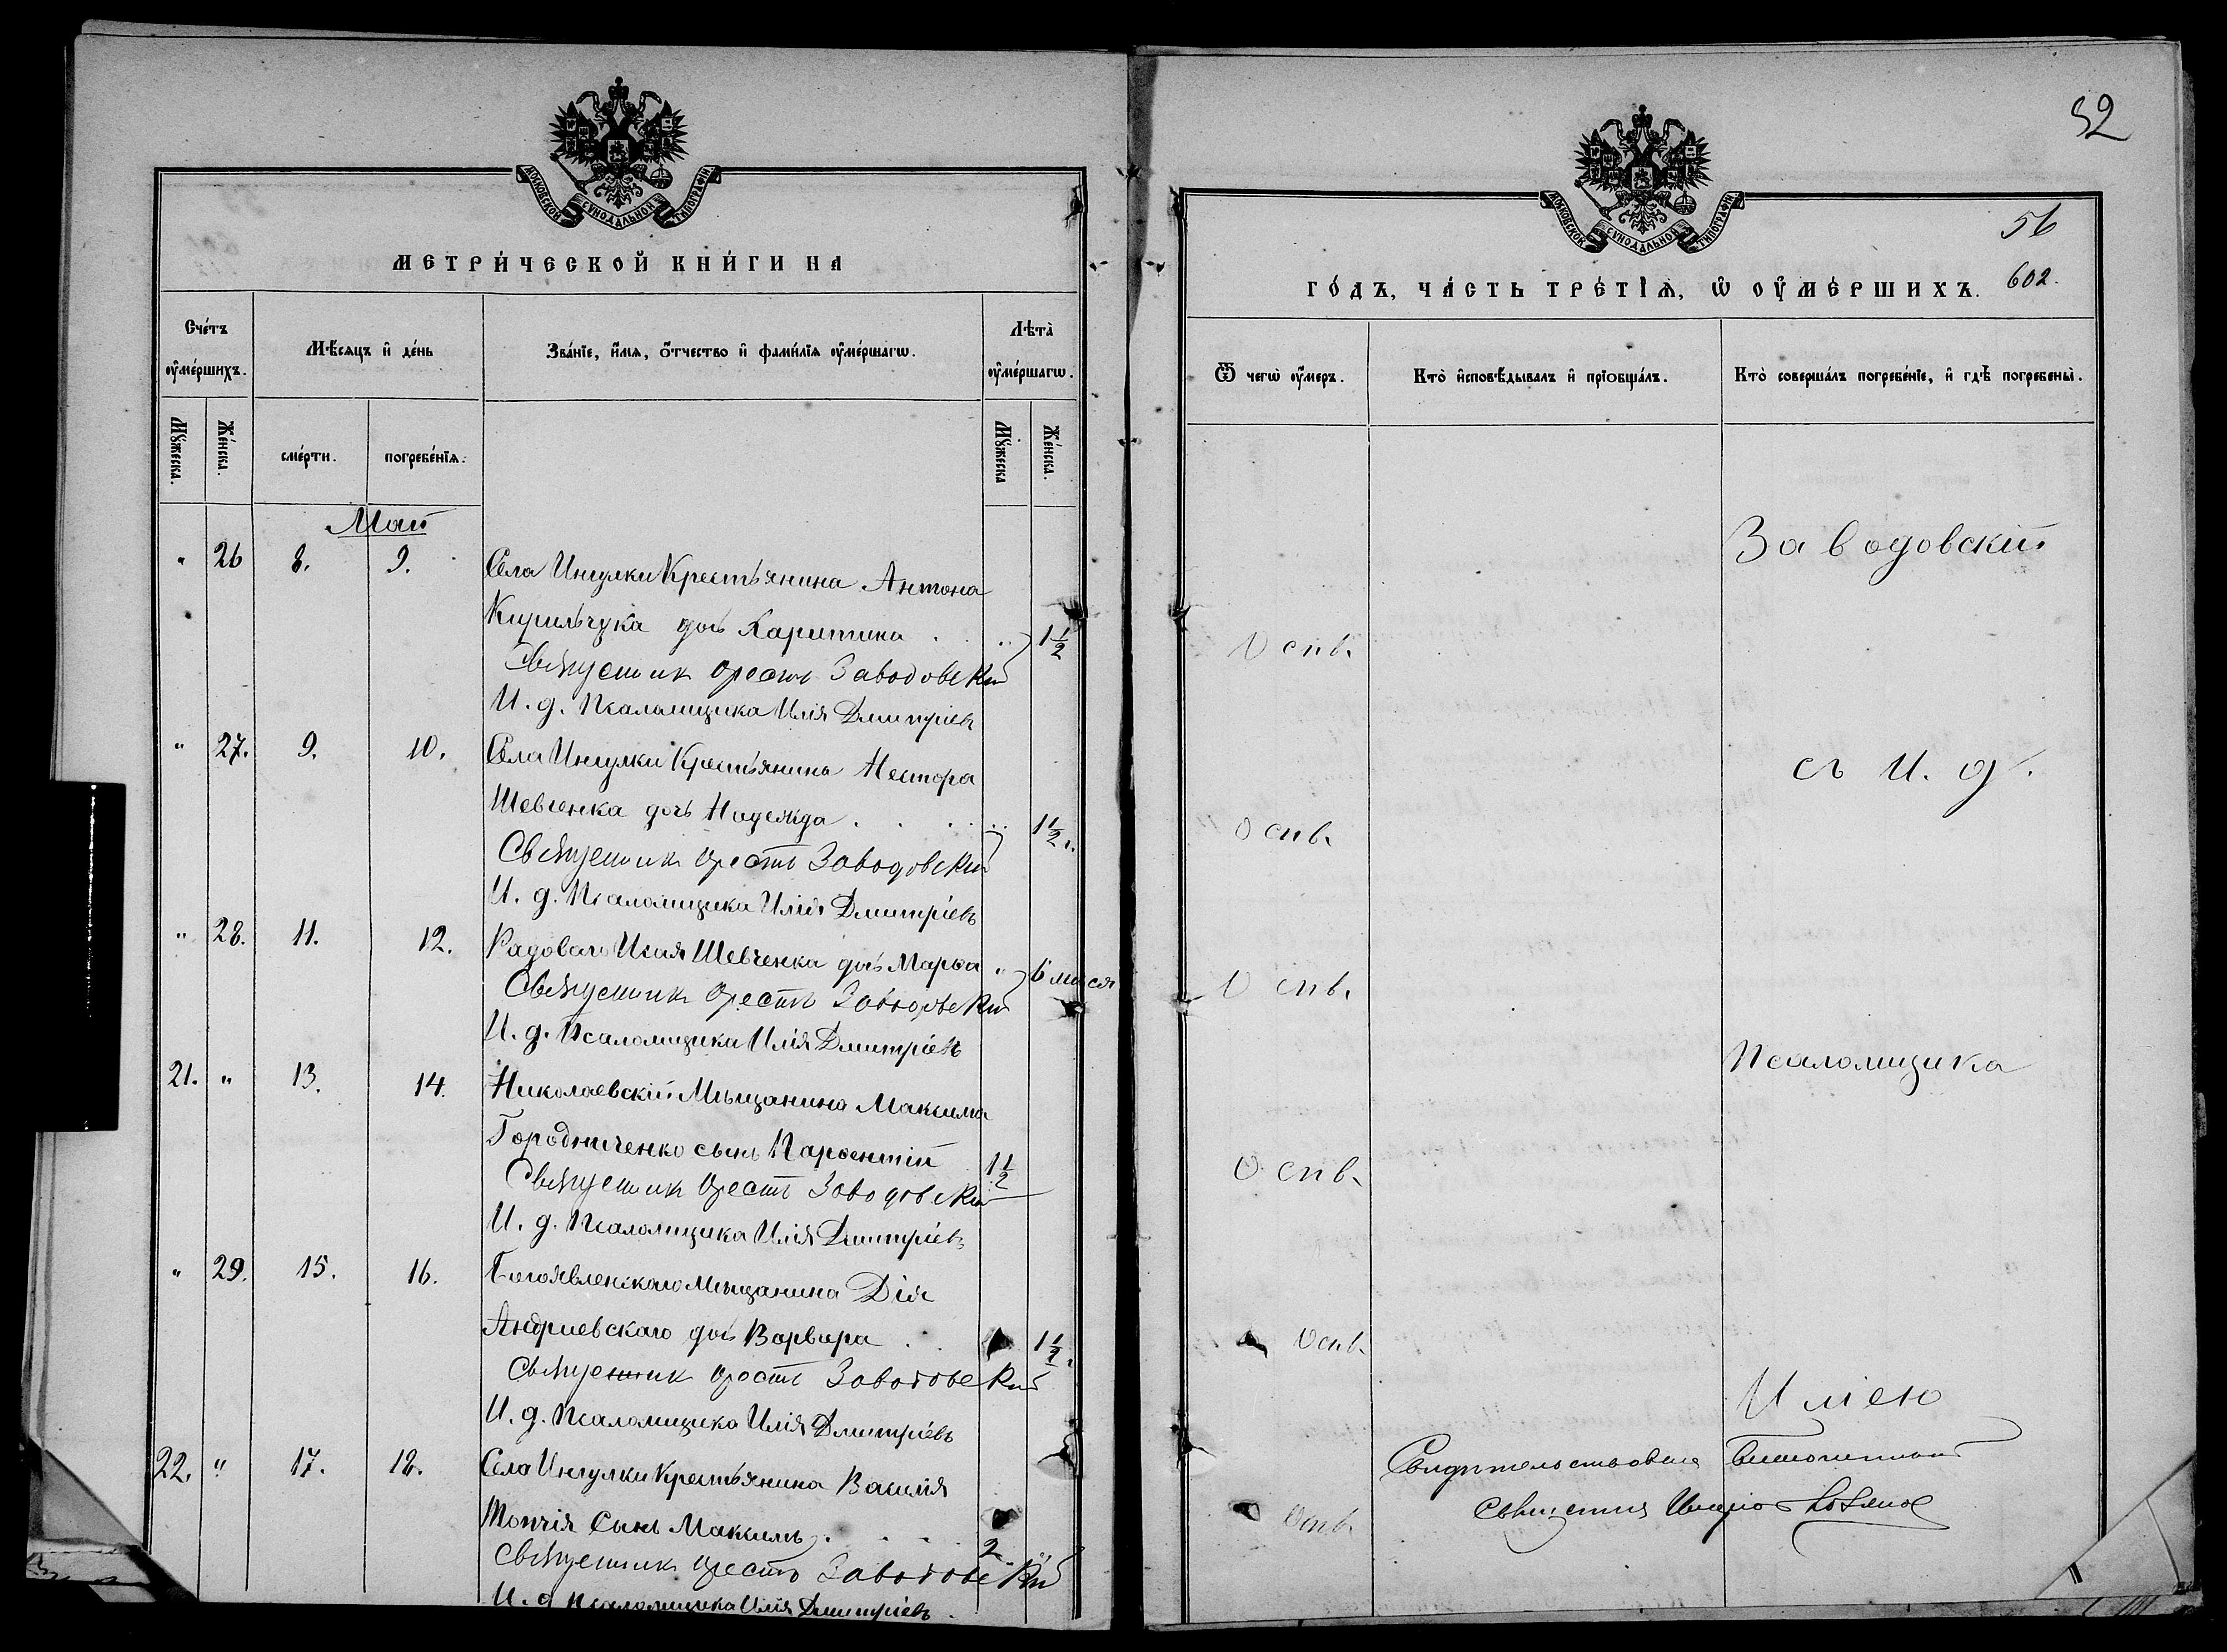 МОСКОВСКОЙ СѴНОДАЛЬНОЙ ТИПОГРАФІИ
МЕТРИ́ЧЕСКОЙ КНИ́ГИ НА
Сче́тъ ᲂу҆ме́ршихъ.
Мѣ́сяцъ и҆ де́нь
Зва́нїе, и҆́мѧ, ѻ҆́тчество и҆ фами́лїѧ ᲂу҆ме́ршагѡ.
Лѣ́та ᲂу҆ме́ршагѡ.
Мꙋ́жеска.
Же́нска.
сме́рти.
погребе́нїѧ.
Мꙋ́жеска
Же́нска.
Май
" 26 8. 9. Села Ингулки Крестьянина Антона
Кирильчука дочь Харитина . . . 1½
Священник Орестъ Заводовскій
И. д. Псаломщика Илія Дмитріевъ
" 27. 9. 10. Села Ингулки Крестьянина Нестора
Шевченка дочь Надежда . . . 1½.
Священник Орестъ Заводовскій
И. д. Псаломщика Илія Дмитріевъ
" 28. 11. 12. Рядоваго Исая Шевченка дочь Марѳа " 6 мѣся
Священник Орестъ Заводовскій
И. д. Псаломщика Илія Дмитріевъ
21. " 13. 14. Николаевскій Мѣщанина Максима
Городниченко сынъ Парѳентій 1½
Священник Орестъ Заводовскій
И. д. Псаломщика Илія Дмитріевъ
" 29. 15. 16. Богоявленскаго Мѣщанина
Андриевскаго дочь Варвара . .
Священник Орестъ Заводовскій
И. д. Псаломщика Илія Дмитріевъ
22. " 17. 18. Села Ингулки Крестьянина Василія
Топчія Сынъ Максимъ . . . 2
Священник Орестъ Заводовскій
И. д. Псаломщика Илія Дмитріевъ.
52
МОСКОВСКОЙ СѴНОДАЛЬНОЙ ТИПОГРАФІИ
56
ГО́ДЪ, ЧА́СТЬ ТРЕ́ТІѦ, Ѡ҆ ОУ҆МЕ́РШИХЪ. 602.
Ѿ чегѡ̀ ᲂу҆́меръ.
Кто̀ и҆сповѣ́дывалъ и҆ прїѡбща́лъ.
Кто̀ соверша́лъ погребе́нїе, и҆ гдѣ̀ погребены̀.
Заводовскій
Оспв.
съ И. д.
Оспв.
Оспв.
Псаломщика
Оспв.
Оспв.
Иліею
Свидѣтельствовалъ Благочинный
Священникъ
Оспв.